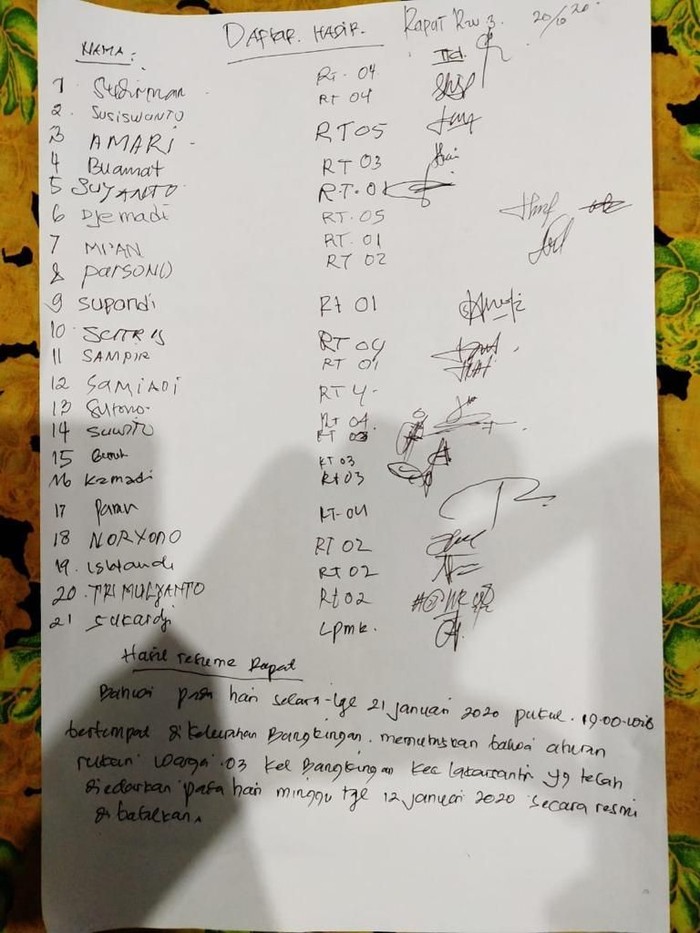 DAFTAR HADIR. Rapat RW 3. 20/10 20
NAMA: Ttd.
1 Sudirman RT. 04
2. Susiswanto RT 04
3 AMARI - RT 05
4 Buamat RT 03
5 SUYANTO RT. 01
6 Djemadi RT. 05
7 MI'AN RT. 01
8 PARSONO RT 02
9 Supandi Rt 01
10 RT 04
11 SAMPIR RT 01
12 SAMIADI RT 4-
13 Sutono. Rt 04.
14 Suwito RT 03
15 RT 03
16 Kamadi Rt 03
17 Rt-04
18 NORYONO RT 02
19. Iswandi RT 02
20 TRI MULYANTO Rt 02
21 Sukardji Lpmk.
Hasil resume Rapat
Bahwa pada hari selasa-tgl 21 januari 2020 pukul. 19.00-WIB
bertempat di Kelurahan Bangkingan. memutuskan bahwa aturan
rukun warga .03 Kel Bangkingan Kec lakarsantri yg telah
diedarkan pada hari minggu tgl 12 januari 2020 secara resmi
di batalkan.